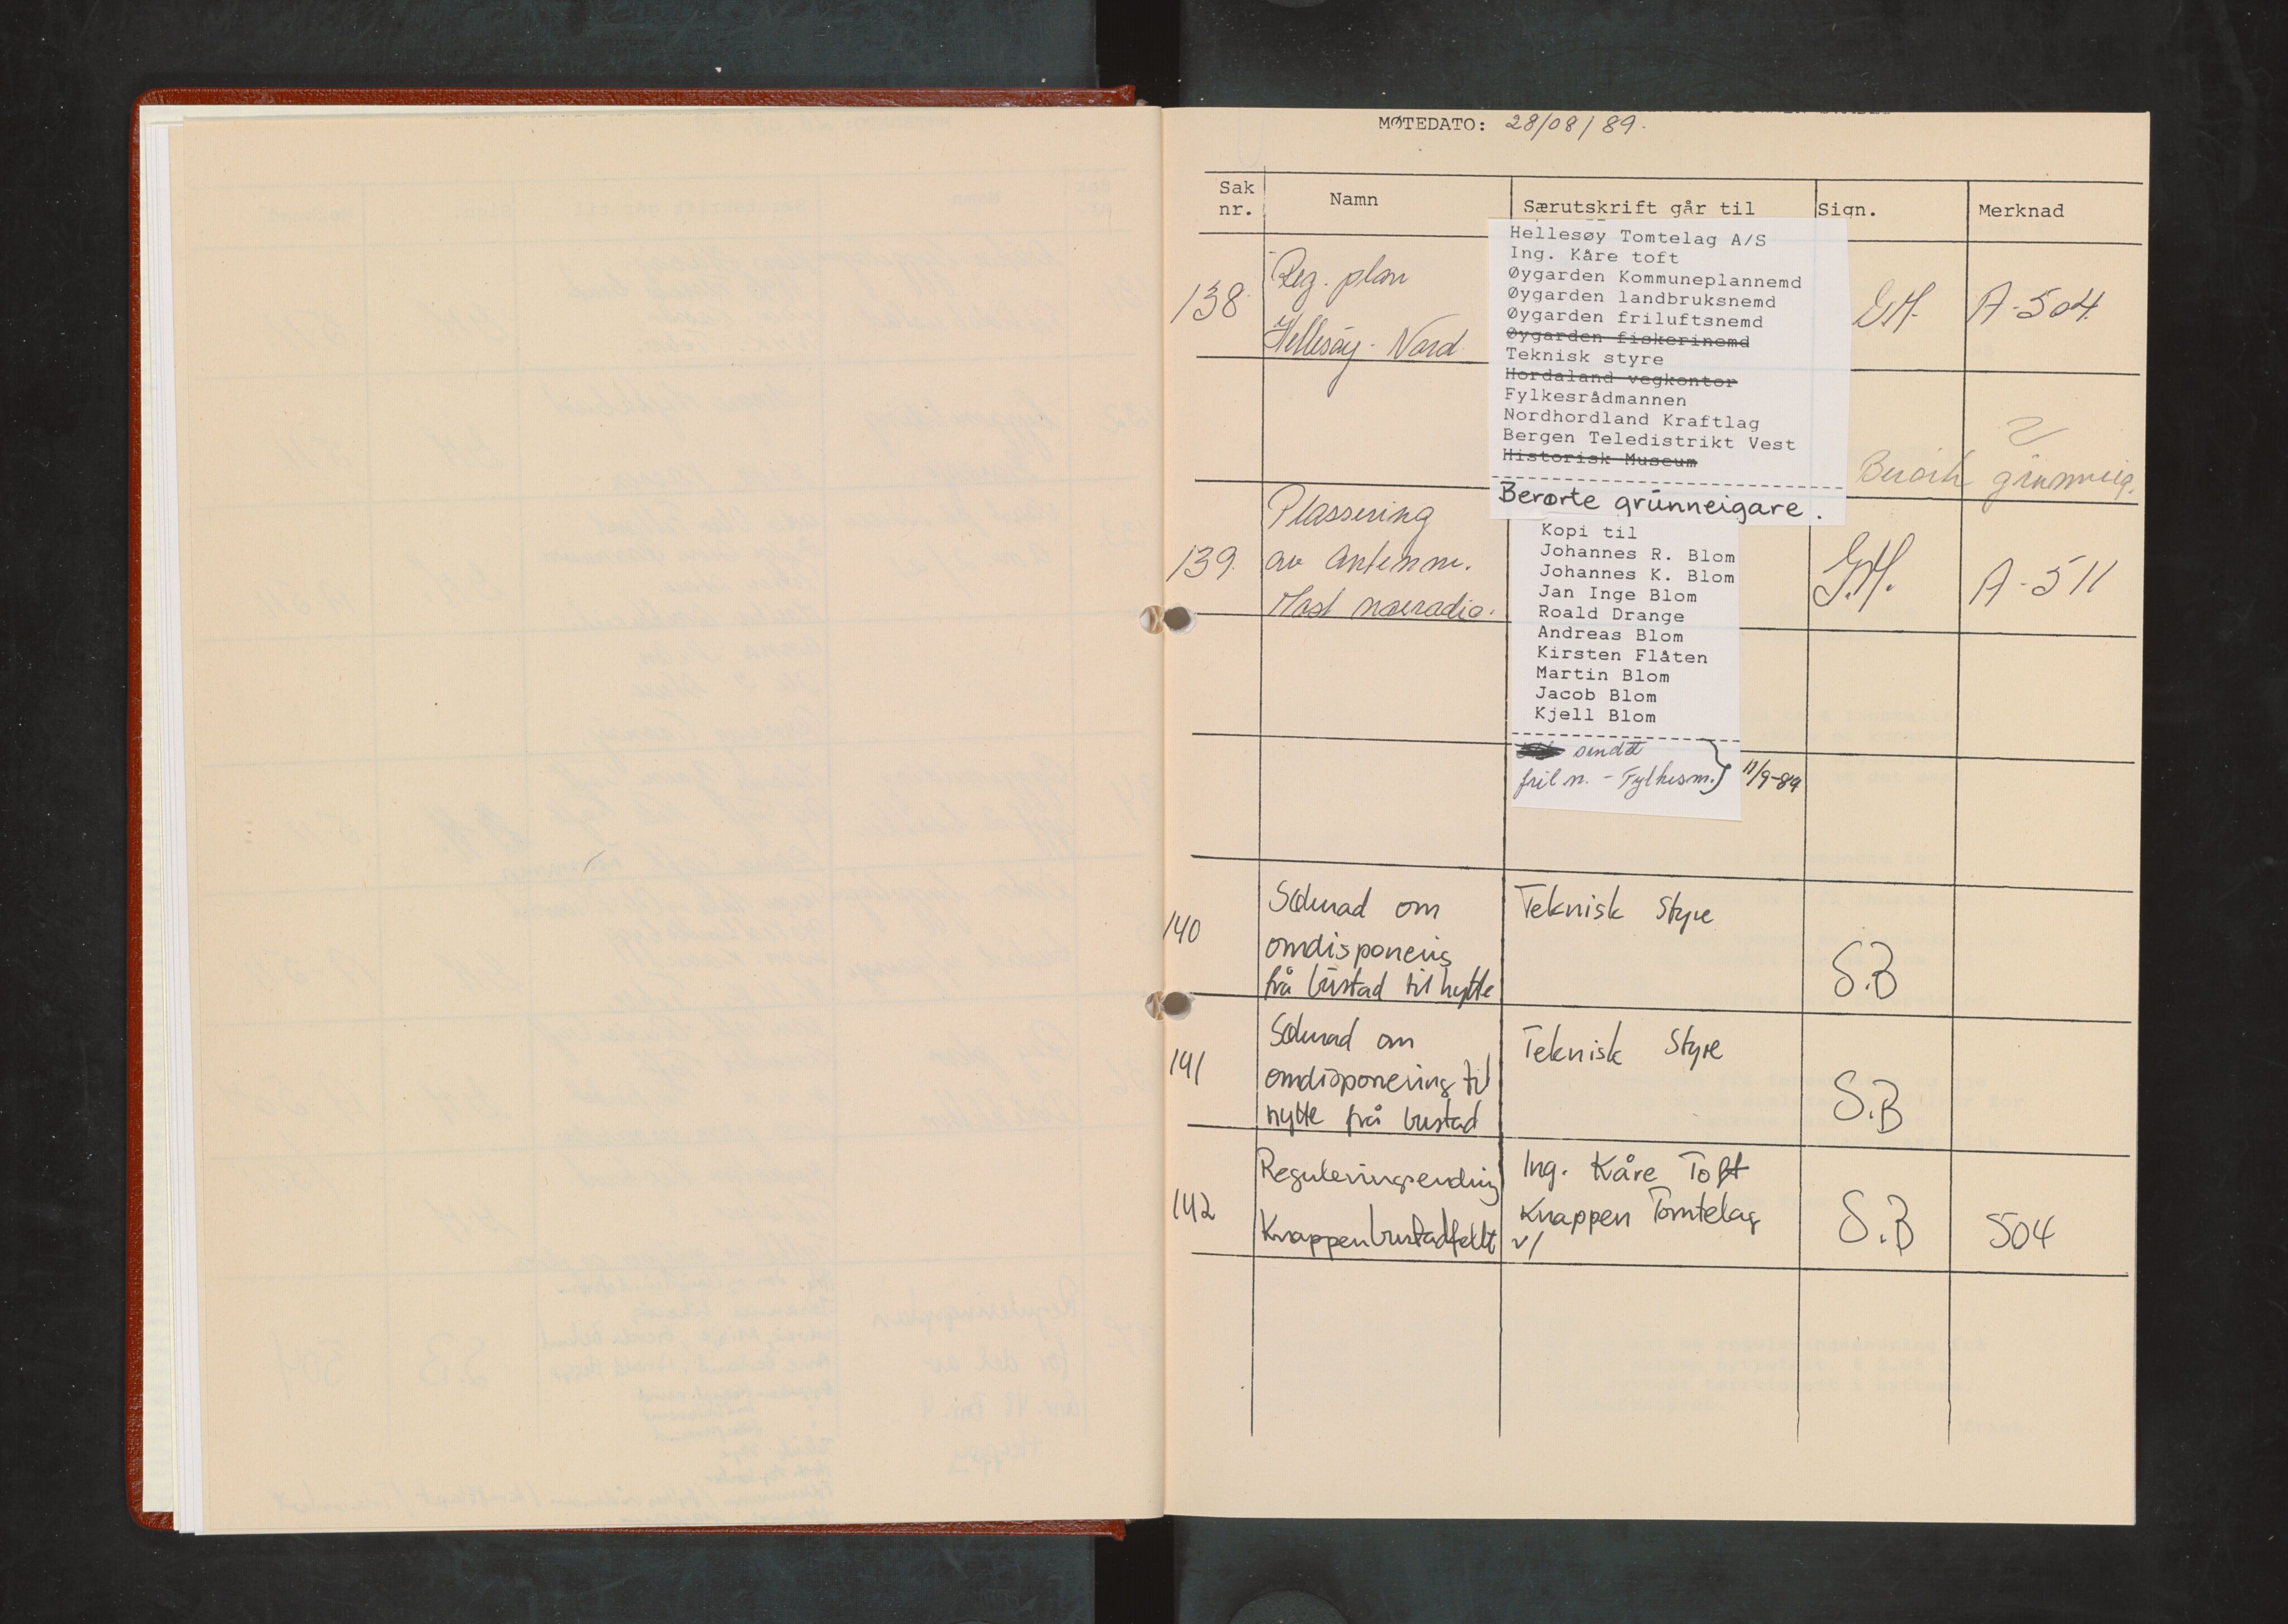 MØTEDATO: 28/08/89.
Sak nr.
Namn
Særutskrift går til
Sign.
Merknad
138
Reg. plan
Hellesøy - Nord
Hellesøy Tomtelag A/S
Ing. Kåre toft
Øygarden Kommuneplannemd
Øygarden landbruksnemd
Øygarden friluftsnemd
Øygarden fiskerinemd
Teknisk styre
Hordaland vegkontor
Fylkesrådmannen
Nordhordland Kraftlag
Bergen Teledistrikt Vest
Historisk Museum
Berørte grunneigare.
A-504.
139.
Plassering
av antenne.
Mast nærradio.
Kopi til
Johannes R. Blom
Johannes K. Blom
Jan Inge Blom
Roald Drange
Andreas Blom
Kirsten Flåten
Martin Blom
Jacob Blom
Kjell Blom
sendt
fril n. - Fylkesm. 11/9-89
G.H.
A-511
140
Søknad om
omdisponering
frå bustad til hytte
Teknisk Styre
S.B
141
Søknad om
omdisponering til
hytte frå bustad
Teknisk Styre
S.B
142
Reguleringsendring
Knappen bustadfellt
Ing. Kåre Toft
Knappen Tomtelag
v/
S.B
504